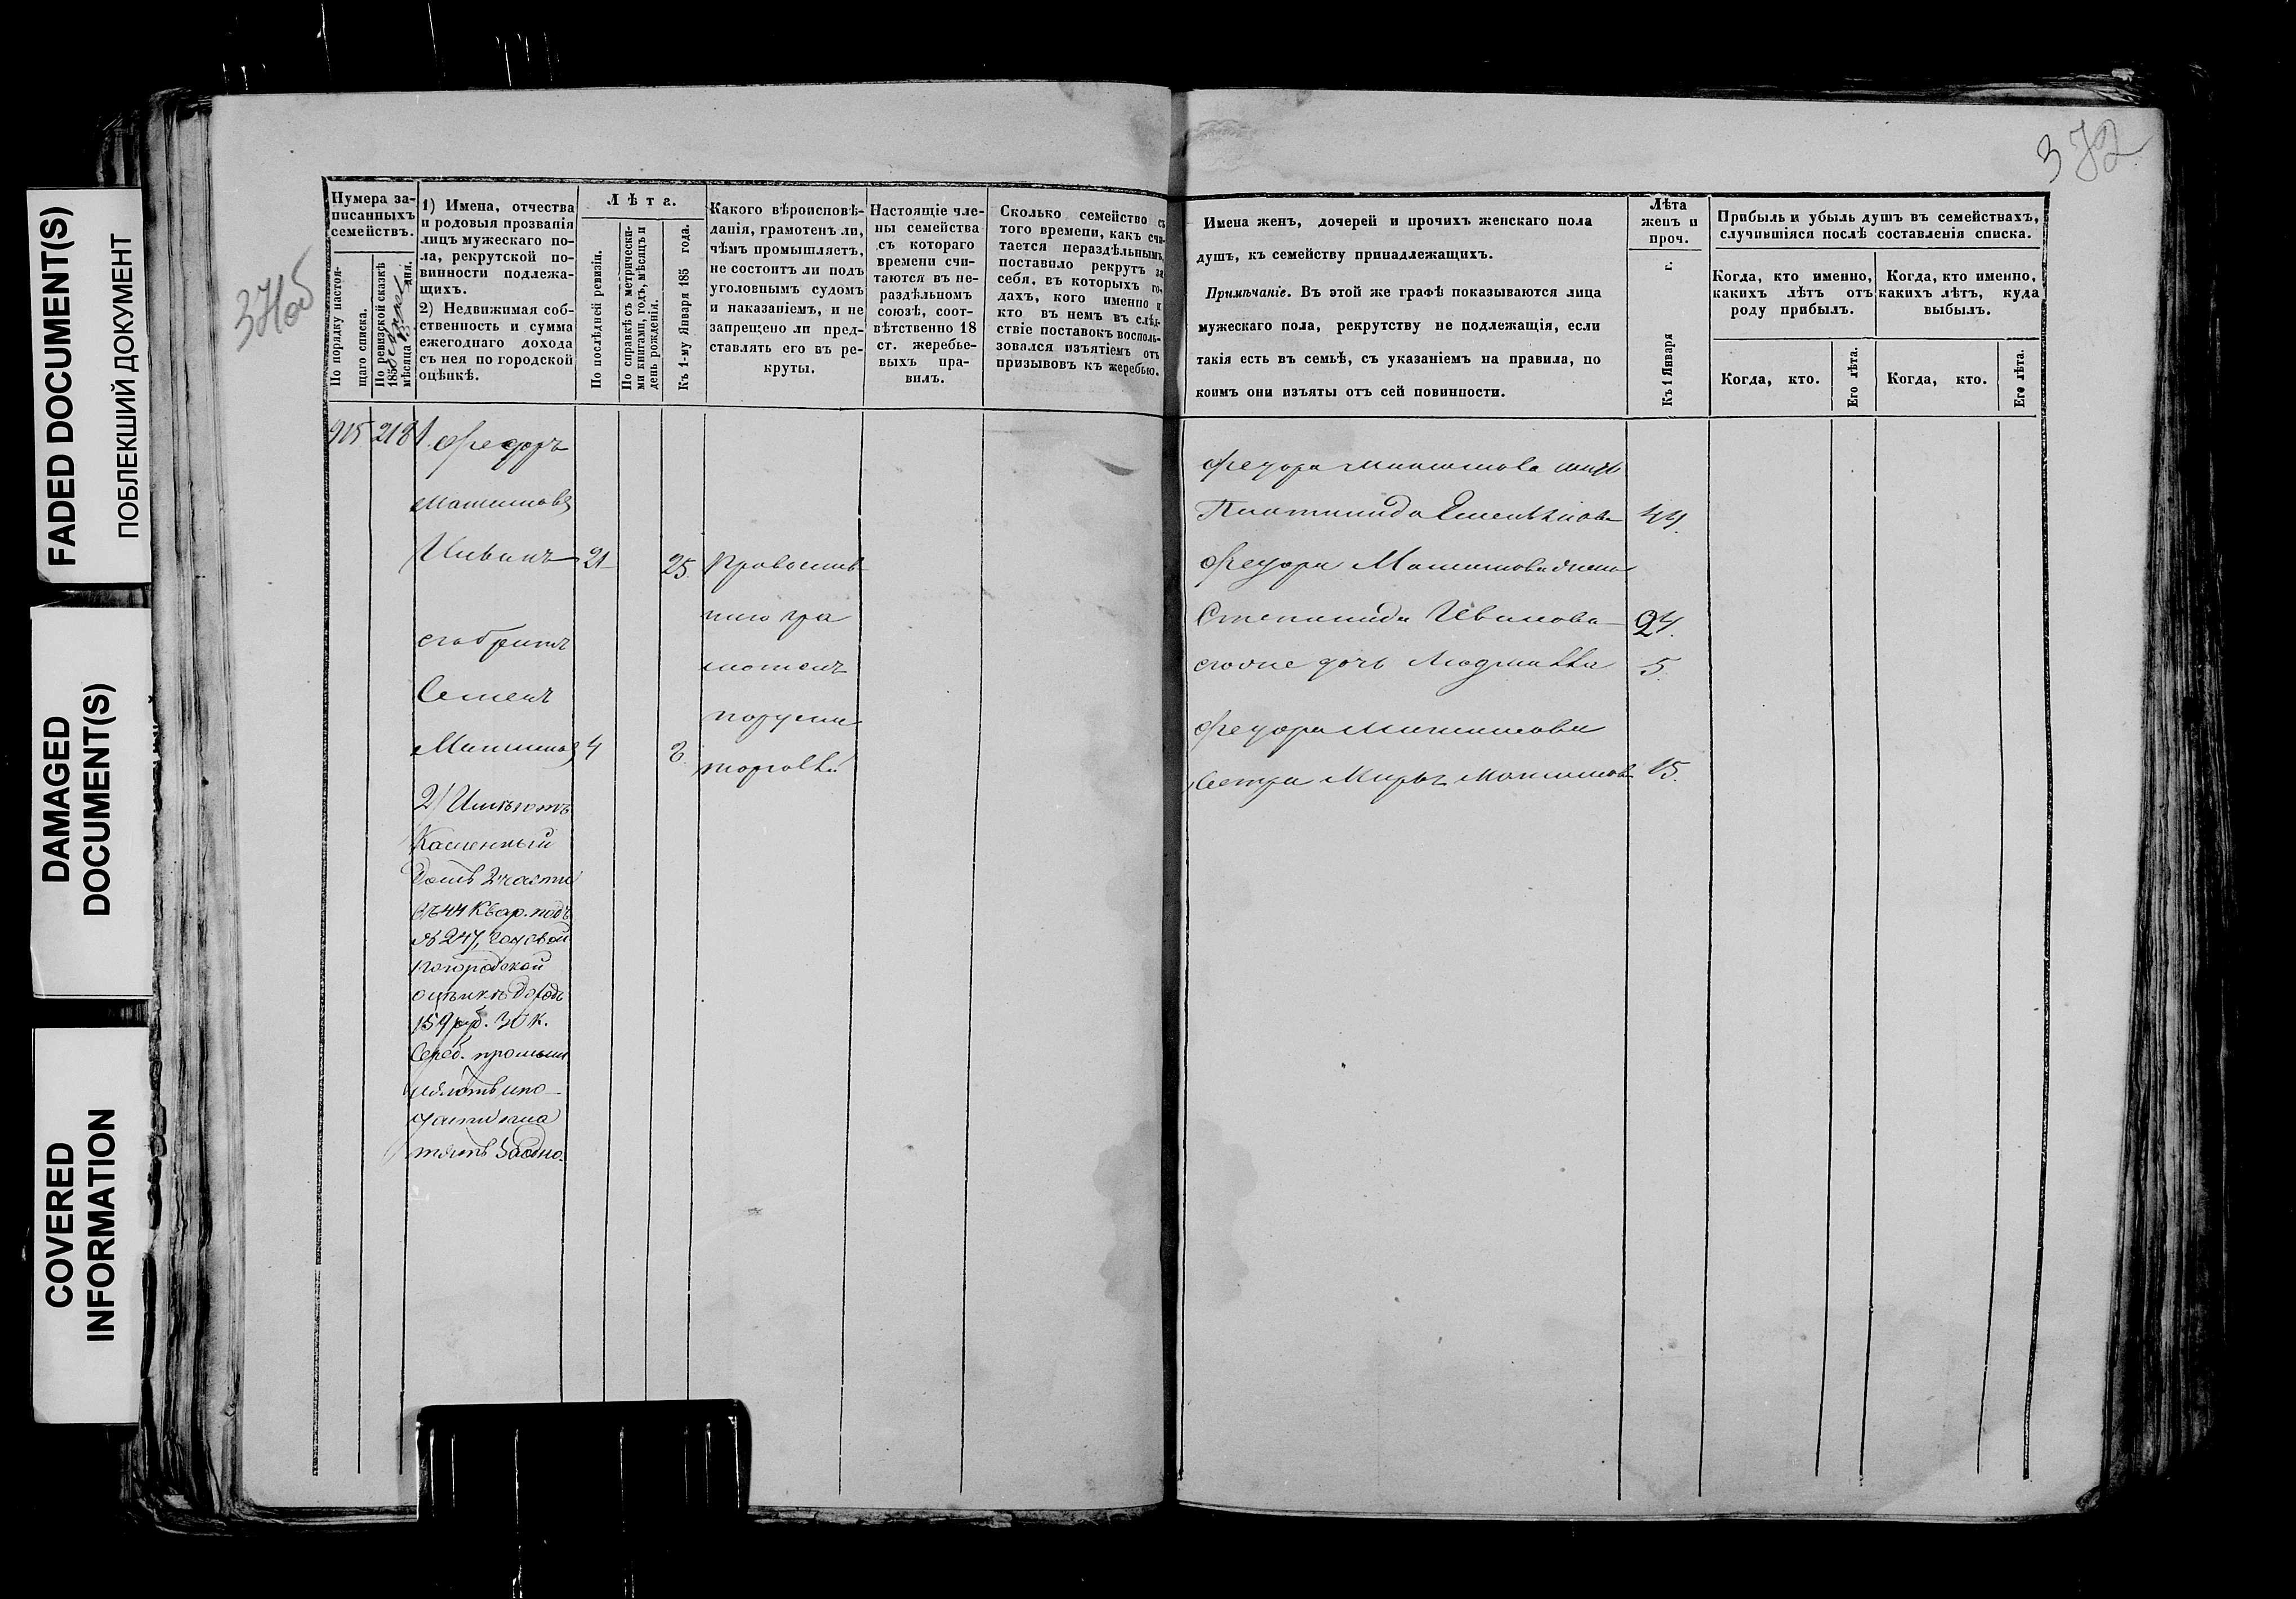 FADED DOCUMENT(S)
ПОБЛЕКШИЙ ДОКУМЕНТ
DAMAGED
DOCUMENT(S)
COVERED
INFORMATION
372
Нумера за-
писанныхъ
семействъ.
По порядку настоя-
щаго списка.
По ревизской сказкѣ
185
мѣсяца дня.
1) Имена, отчества
и родовыя прозванія
лицъ мужескаго по-
ла, рекрутской по-
винности подлежа-
щихъ.
2) Недвижимая соб-
ственность и сумма
ежегоднаго дохода
съ нея по городской
оцѣнкѣ.
Лѣта.
По послѣдней ревизіи.
По справкѣ съ метрически-
ми книгами, годъ, мѣсяцъ и
день рожденія.
Къ 1-му Января 185 года.
Какого вѣроисповѣ-
данія, грамотенъ ли,
чѣмъ промышляетъ,
не состоитъ ли подъ
уголовнымъ судомъ
и наказаніемъ, и не
запрещено ли пред-
ставлять его въ ре-
круты.
Настоящіе чле-
ны семейства
съ котораго
времени счи-
таются въ не-
раздѣльномъ
союзѣ, соот-
вѣтственно 18
ст. жеребье-
выхъ пра-
вилъ.
Сколько семейство съ
того времени, какъ счи-
тается нераздѣльнымъ,
поставило рекрутъ за
себя, въ которыхъ го-
дахъ, кого именно и
кто въ немъ въ слѣд-
ствіе поставокъ восполь-
зовался изъятіемъ отъ
призывовъ къ жеребью.
915 218 1 Федоръ
21 25 Православ
наго гра
мотенъ
его братъ
Семенъ
4 8
торговлѣ
2) Имѣютъ
Каменный
Домъ 2 части
въ 44 Квар. подъ
№ 247, годовой
по городской
оцѣнкѣ доходъ
159 руб. 30 к.
Сереб. промыш
заодно.
Имена женъ, дочерей и прочихъ женскаго пола
душъ, къ семейству принадлежащихъ.
Примѣчаніе. Въ этой же графѣ показываются лица
мужескаго пола, рекрутству не подлежащія, если
такія есть въ семьѣ, съ указаніемъ на правила, по
коимъ они изъяты отъ сей повинности.
Лѣта
женъ и
проч.
Къ 1 Января г.
Прибыль и убыль душъ въ семействахъ,
случившіяся послѣ составленія списка.
Когда, кто именно,
какихъ лѣтъ отъ
роду прибылъ.
Когда, кто именно,
какихъ лѣтъ, куда
выбылъ.
Когда, кто.
Его лѣта.
Когда, кто.
Его лѣта.
Федора мать
44
Федора жена
Степанида Иванова 24
дочь 5
Федора
Сестра 15.